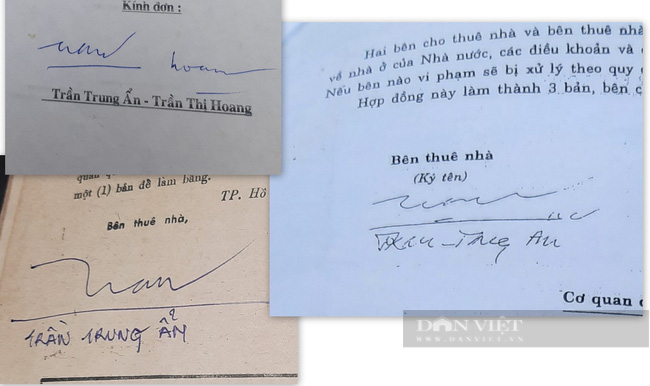 Kính đơn :
Trần Trung Ẩn - Trần Thị Hoang
một (1) bản để làm bằng.
TP. Hồ
Bên thuê nhà,
TRẦN TRUNG ẨN
Hai bên cho thuê nhà và bên thuê nhà
về nhà ở của Nhà nước, các điều khoản và
Nếu bên nào vi phạm sẽ bị xử lý theo quy
Hợp đồng này làm thành 3 bản, bên
Bên thuê nhà
(Ký tên)
Cơ quan
DÂN VIỆT
WWW.DANVIET.VN